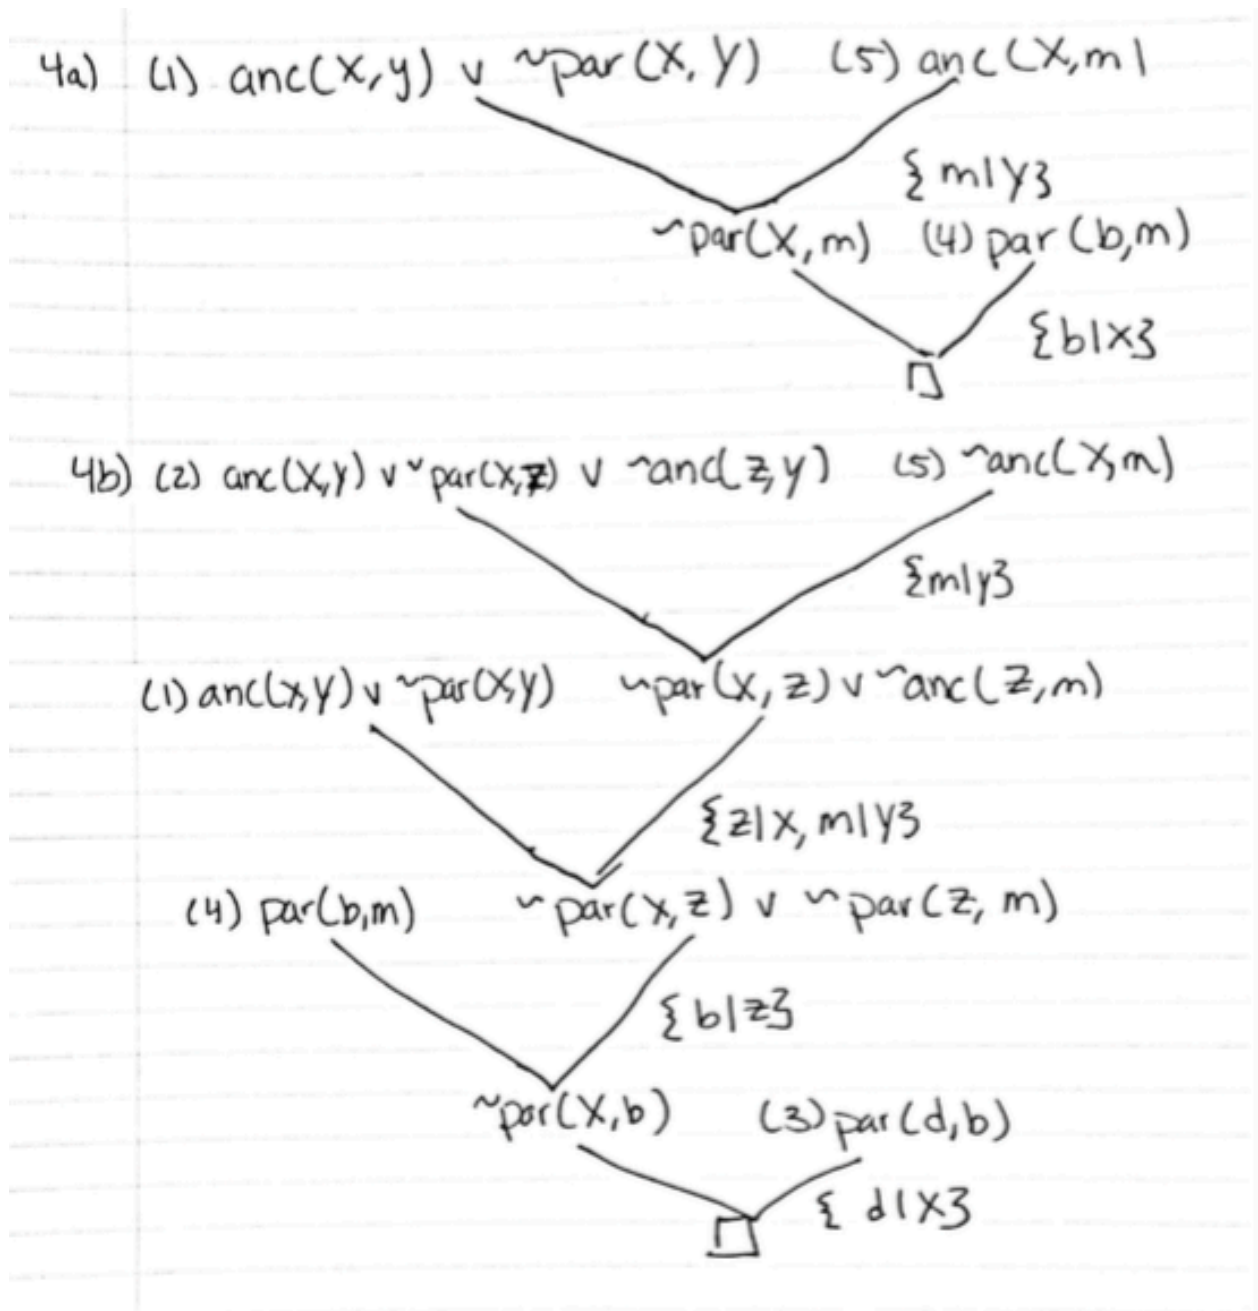 4a) (1) anc(x,y) v ~par(x,y) (5) anc(x,m)
{m|y}
~par(x,m) (4) par(b,m)
{b|x}
4b) (2) anc(x,y) v ~par(x,z) v ~anc(z,y) (5) ~anc(x,m)
{m|y}
(1) anc(x,y) v ~par(x,y) ~par(x,z) v ~anc(z,m)
{z|x, m|y}
(4) par(b,m) ~par(x,z) v ~par(z, m)
{b|z}
~par(x,b) (3) par(d,b)
{d|x}